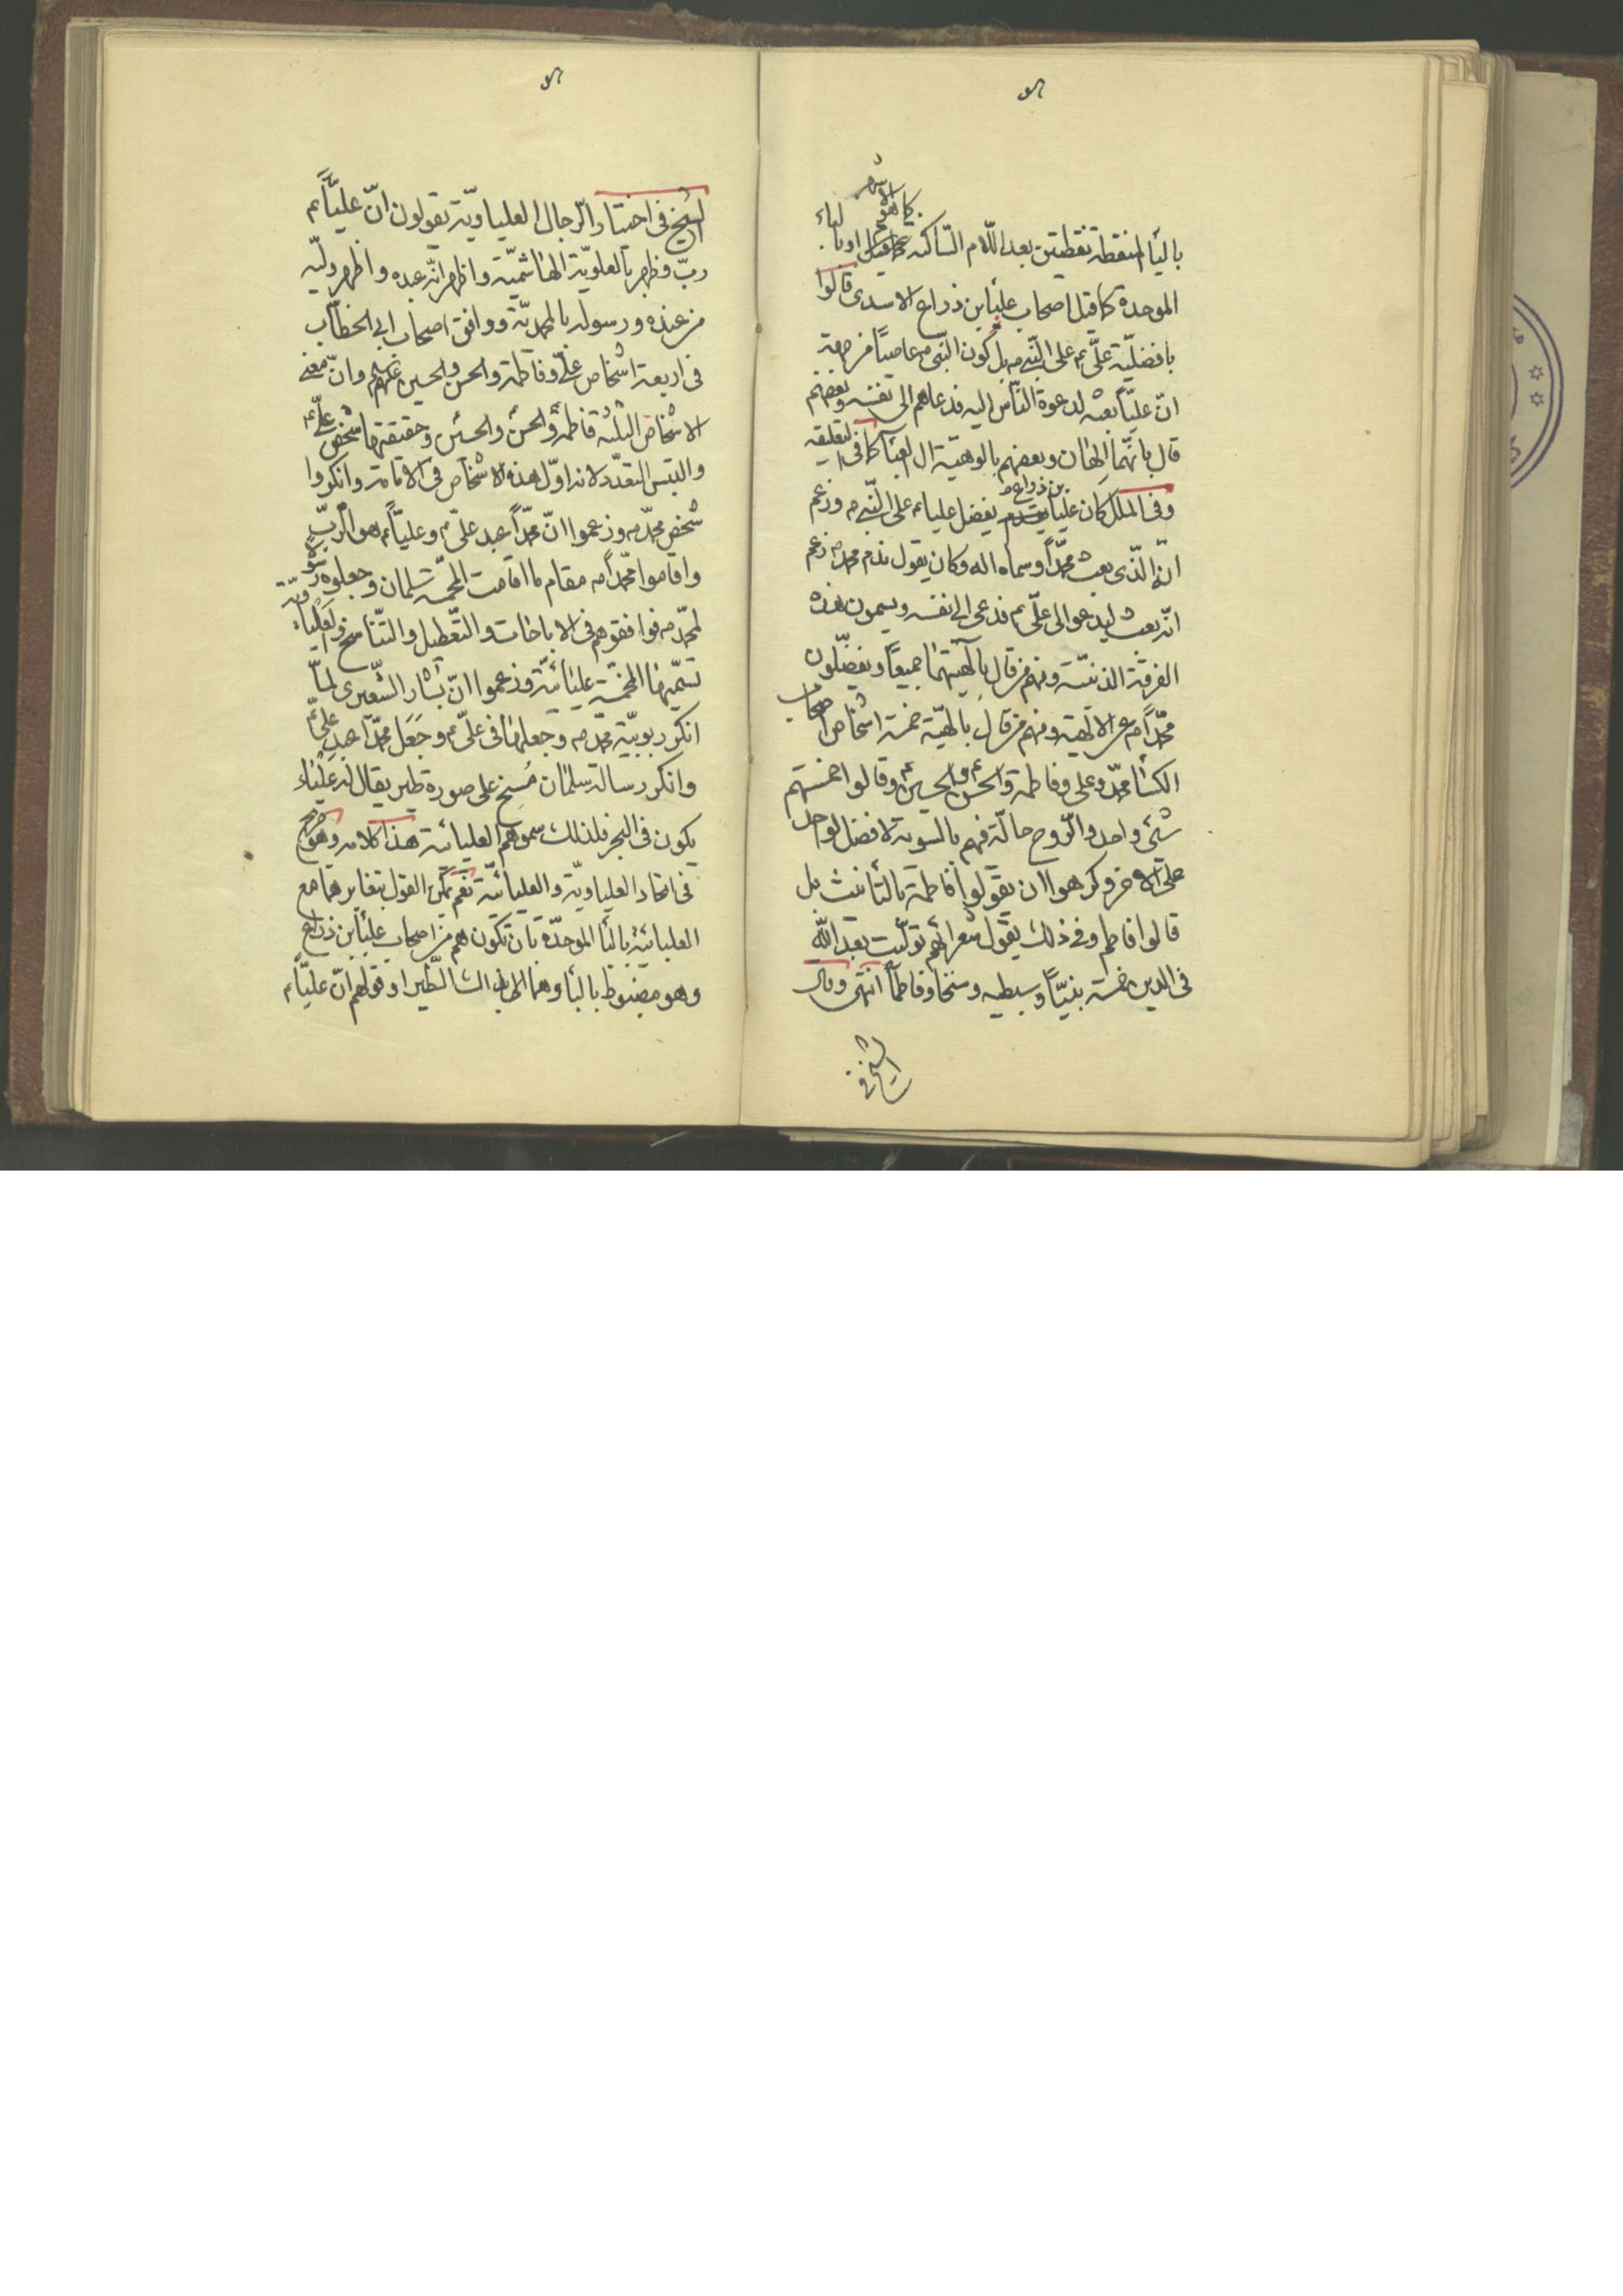 كما هو الاشهر
بالياء المنقطة بنقطتين بعد اللام الساكنة او بالباء
الموحدة كما قيل اصحاب عليا بن ذراع الاسدى قالوا
بافضليّة علىّ ع على النّبى ص بل كون النّبى ص عاصيًا من جهة
انّ عليّاً بعثه لدعوة النّاس اليه فدعاهم الى نفسه وبعضهم
قال بانّهما الهان وبعضهم بالوهيّة ال العبا كما فى التعليقه
وفى الملل كان عليا بن ذراع يفضل عليا ع على النّبى ص وزعم
انّه الّذى بعث محمّداً وسماه اله وكان يقول بذم محمد ص زعم
انّه بعث ليدعو الى علىّ ع فدعى الى نفسه ويسمون هذه
الفرقة الذميّة ومنهم من قال بالهيتهما جميعاً ويفضّلون
محمّداً ص فى الالهية ومنهم من قال بالهيّة خمسة اشخاص اصحاب
الكساء محمّد وعلى وفاطمة والحسن ع والحسين ع وقالوا خمستهم
شئ واحد والرّوح حالّة فيهم بالسوية لا فضل لواحد
على الاخر وكرهوا ان يقولوا فاطمة بالتأنيث بل
قالوا فاطم وفى ذلك يقول شعرائهم تولّيت بعد اللّه
فى الدين خمسة نبيّاً وسبطيه وشيخا وفاطماً انتهى وقال
الشيخ فى
الشيخ فى اختيار الرّجال العلياويّة يقولون انّ عليّاً ع
ربّ وظهر بالعلويّة الهاشميّة واظهر انّه عبده واظهر وليّه
من عنده ورسوله بالمحمديّة ووافق اصحاب ابى الخطّاب
فى اربعة اشخاص علىّ وفاطمة والحسن والحسين عليهم وانّ معنى
الاشخاص الثلثه فاطمة والحسن والحسين وحقيقتها شخص علىّ ع
والتبس التعدّد لانه اوّل هذه الاشخاص فى الامامة وانكروا
شخص محمّد ص وزعموا انّ محمّداً عبد علىّ ع وعليّاً ع هو الرّبّ
واقاموا محمّداً ص مقام ما اقامت المخمّسة سلمان وجعلوه رسولاً
لمحمّد ص فوافقوهم فى الاباحات والتّعطيل والتّناسخ والعلياويّة
تسمّيها المخمّسة عليائيّة وزعموا انّ بشار الشّعيرى لمّا
انكر ربوبيّة محمّد ص وجعلها فى علىّ ع وجعل محمّداً عبد علىّ ع
وانكر رسالة سلمان مُسخ على صورة طير يقال له علياء
يكون فى البحر فلذلك سموهم العليائية هذا كلامه وهو صريح
فى اتحاد العلياويّة والعليائيّة نعم يمكن القول بتغايرهما مع
العلبائيّة بالباء الموحدّة بان تكون هم من اصحاب علبا بن ذراع
وهو مضبوط بالباء وهما الهان الطّير او قولهم انّ عليّاً ع